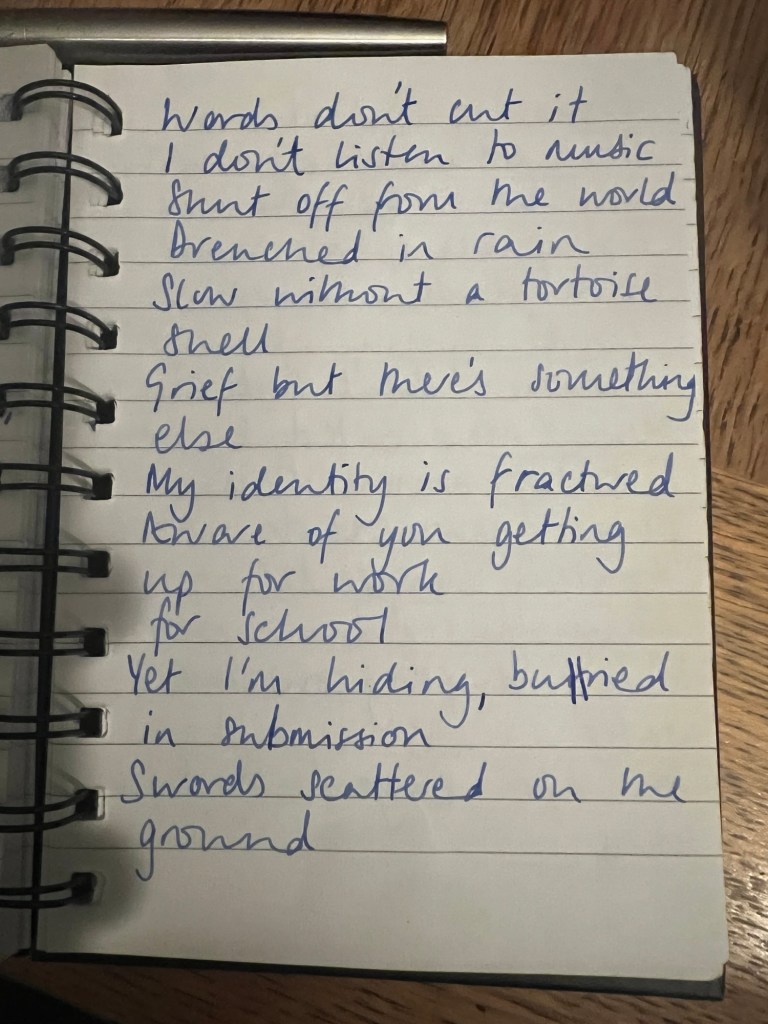 Words don't cut it
I don't listen to music
Shut off from the world
Drenched in rain
Slow without a tortoise
shell
Grief but there's something
else
My identity is fractured
Aware of you getting
up for work
for school
Yet I'm hiding, burried
in submission
Swords scattered on the
ground